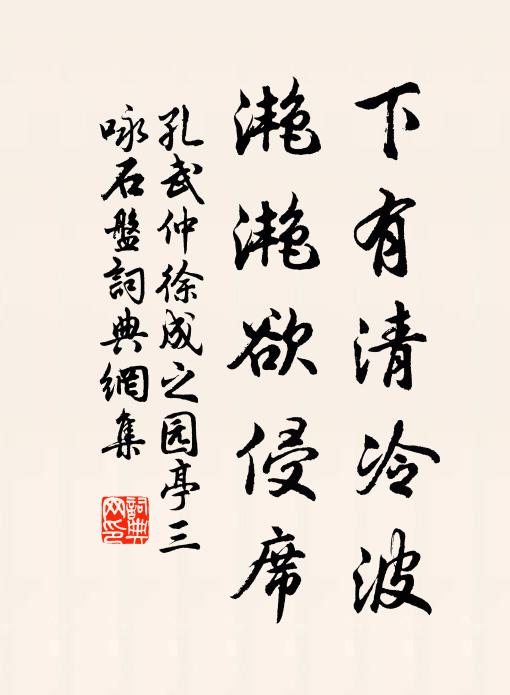 下有清冷波
滟滟欲侵席
孔武仲徐成之园亭三
咏石盤詞典網集
詞典网印